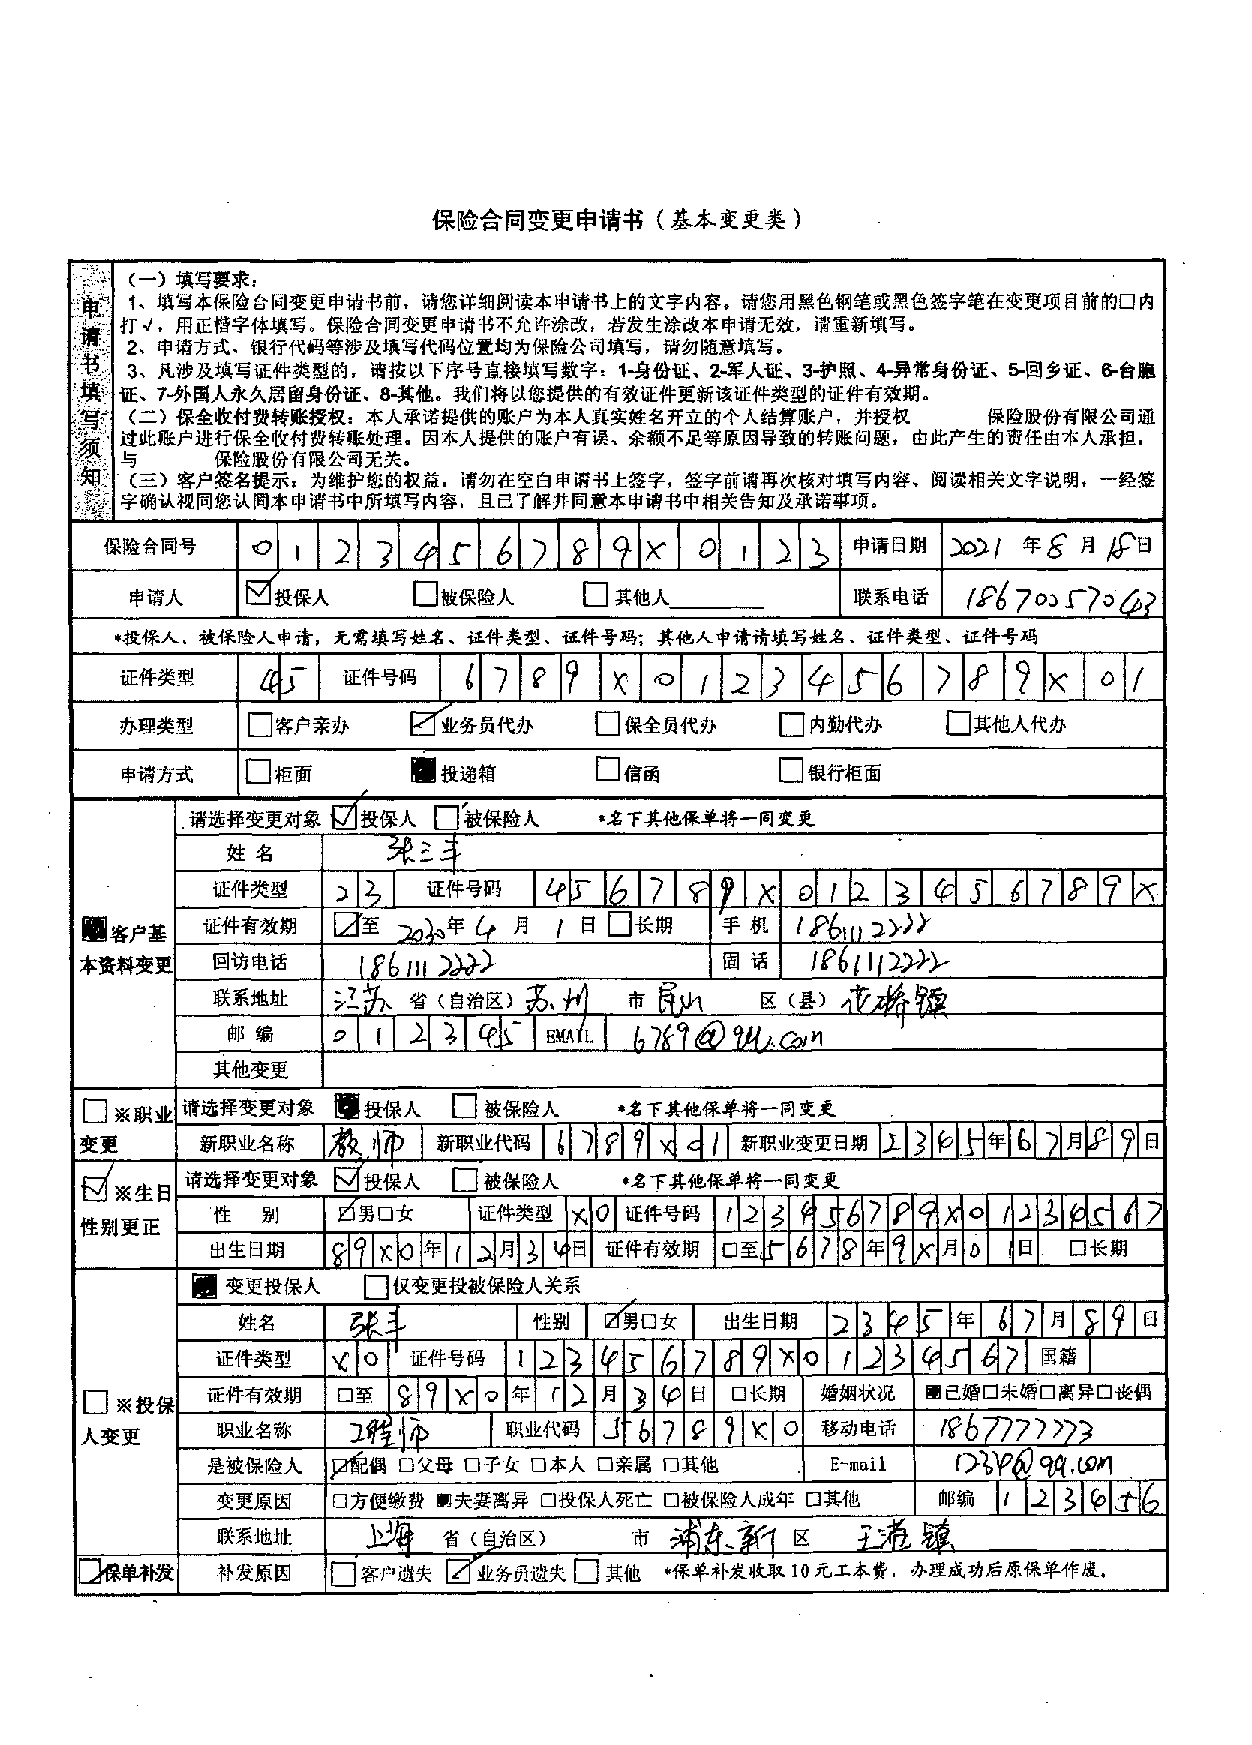 保险合同变更申请书（基本变更类）
申请书填写须知
（一）填写要求：
1、填写本保险合同变更申请书前，请您详细阅读本申请书上的文字内容，请您用黑色钢笔或黑色签字笔在变更项目前的□内
打√，用正楷字体填写。保险合同变更申请书不允许涂改，若发生涂改本申请无效，请重新填写。
2、申请方式、银行代码等涉及填写代码位置均为保险公司填写，请勿随意填写。
3、凡涉及填写证件类型的，请按以下序号直接填写数字：1-身份证、2-军人证、3-护照、4-异常身份证、5-回乡证、6-台胞
证、7-外国人永久居留身份证、8-其他。我们将以您提供的有效证件更新该证件类型的证件有效期。
（二）保全收付费转账授权：本人承诺提供的账户为本人真实姓名开立的个人结算账户，并授权 保险股份有限公司通
过此账户进行保全收付费转账处理。因本人提供的账户有误、余额不足等原因导致的转账问题，由此产生的责任由本人承担，
与 保险股份有限公司无关。
（三）客户签名提示：为维护您的权益，请勿在空白申请书上签字，签字前请再次核对填写内容、阅读相关文字说明，一经签
字确认视同您认同本申请书中所填写内容，且已了解并同意本申请书中相关告知及承诺事项。
保险合同号 0 1 2 3 4 5 6 7 8 9 X 0 1 2 3 申请日期 2021 年 8 月 18 日
申请人 ☑投保人 □被保险人 □其他人________ 联系电话 18670057043
*投保人、被保险人申请，无需填写姓名、证件类型、证件号码；其他人申请请填写姓名、证件类型、证件号码
证件类型 4 5 证件号码 6 7 8 9 X 0 1 2 3 4 5 6 7 8 9 X 0 1
办理类型 □客户亲办 ☑业务员代办 □保全员代办 □内勤代办 □其他人代办
申请方式 □柜面 ■投递箱 □信函 □银行柜面
■客户基本资料变更 请选择变更对象 ☑投保人 □被保险人 *名下其他保单将一同变更
姓名 张三丰
证件类型 2 3 证件号码 4 5 6 7 8 9 X 0 1 2 3 4 5 6 7 8 9 X
证件有效期 ☑至 2030年 4 月 1 日 □长期 手机 1861112222
回访电话 1861112222 固话 1861112222
联系地址 江苏 省（自治区） 苏州 市 昆山 区（县） 花桥镇
邮编 0 1 2 3 4 5 EMAIL 6789@qq.com
其他变更
□※职业变更 请选择变更对象 ■投保人 □被保险人 *名下其他保单将一同变更
新职业名称 教师 新职业代码 6 7 8 9 X 0 1 新职业变更日期 2 3 4 5 年 6 7 月 8 9 日
☑※生日性别更正 请选择变更对象 ☑投保人 □被保险人 *名下其他保单将一同变更
性别 ☑男□女 证件类型 X 0 证件号码 1 2 3 4 5 6 7 8 9 X 0 1 2 3 4 5 6 7
出生日期 8 9 X 0 年 1 2 月 3 4 日 证件有效期 □至 5 6 7 8 年 9 X 月 0 1 日 □长期
□※投保人变更 ■变更投保人 □仅变更投被保险人关系
姓名 张丰 性别 ☑男□女 出生日期 2 3 4 5 年 6 7 月 8 9 日
证件类型 X 0 证件号码 1 2 3 4 5 6 7 8 9 X 0 1 2 3 4 5 6 7 国籍
证件有效期 □至 8 9 X 0 年 1 2 月 3 4 日 □长期 婚姻状况 ■已婚□未婚□离异□丧偶
职业名称 工程师 职业代码 5 6 7 8 9 X 0 移动电话 18677777773
是被保险人 ☑配偶 □父母 □子女 □本人 □亲属 □其他 E-mail 1234@qq.com
变更原因 □方便缴费 ■夫妻离异 □投保人死亡 □被保险人成年 □其他 邮编 1 2 3 4 5 6
联系地址 上海 省（自治区） 市 浦东新 区 王港镇
☑保单补发 补发原因 □客户遗失 ☑业务员遗失 □其他 *保单补发收取10元工本费，办理成功后原保单作废。